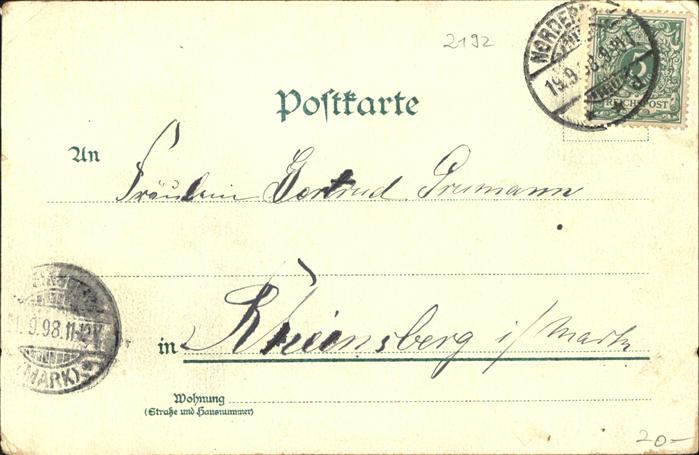 2192
NORDERN
19.9.98.
5
REICHSPOST
Postkarte
An
Fräulein Gertrud
9.98.11-12V.
(MARK)
in Rheinsberg i/Mark
Wohnung
(Straße und Hausnummer)
20-